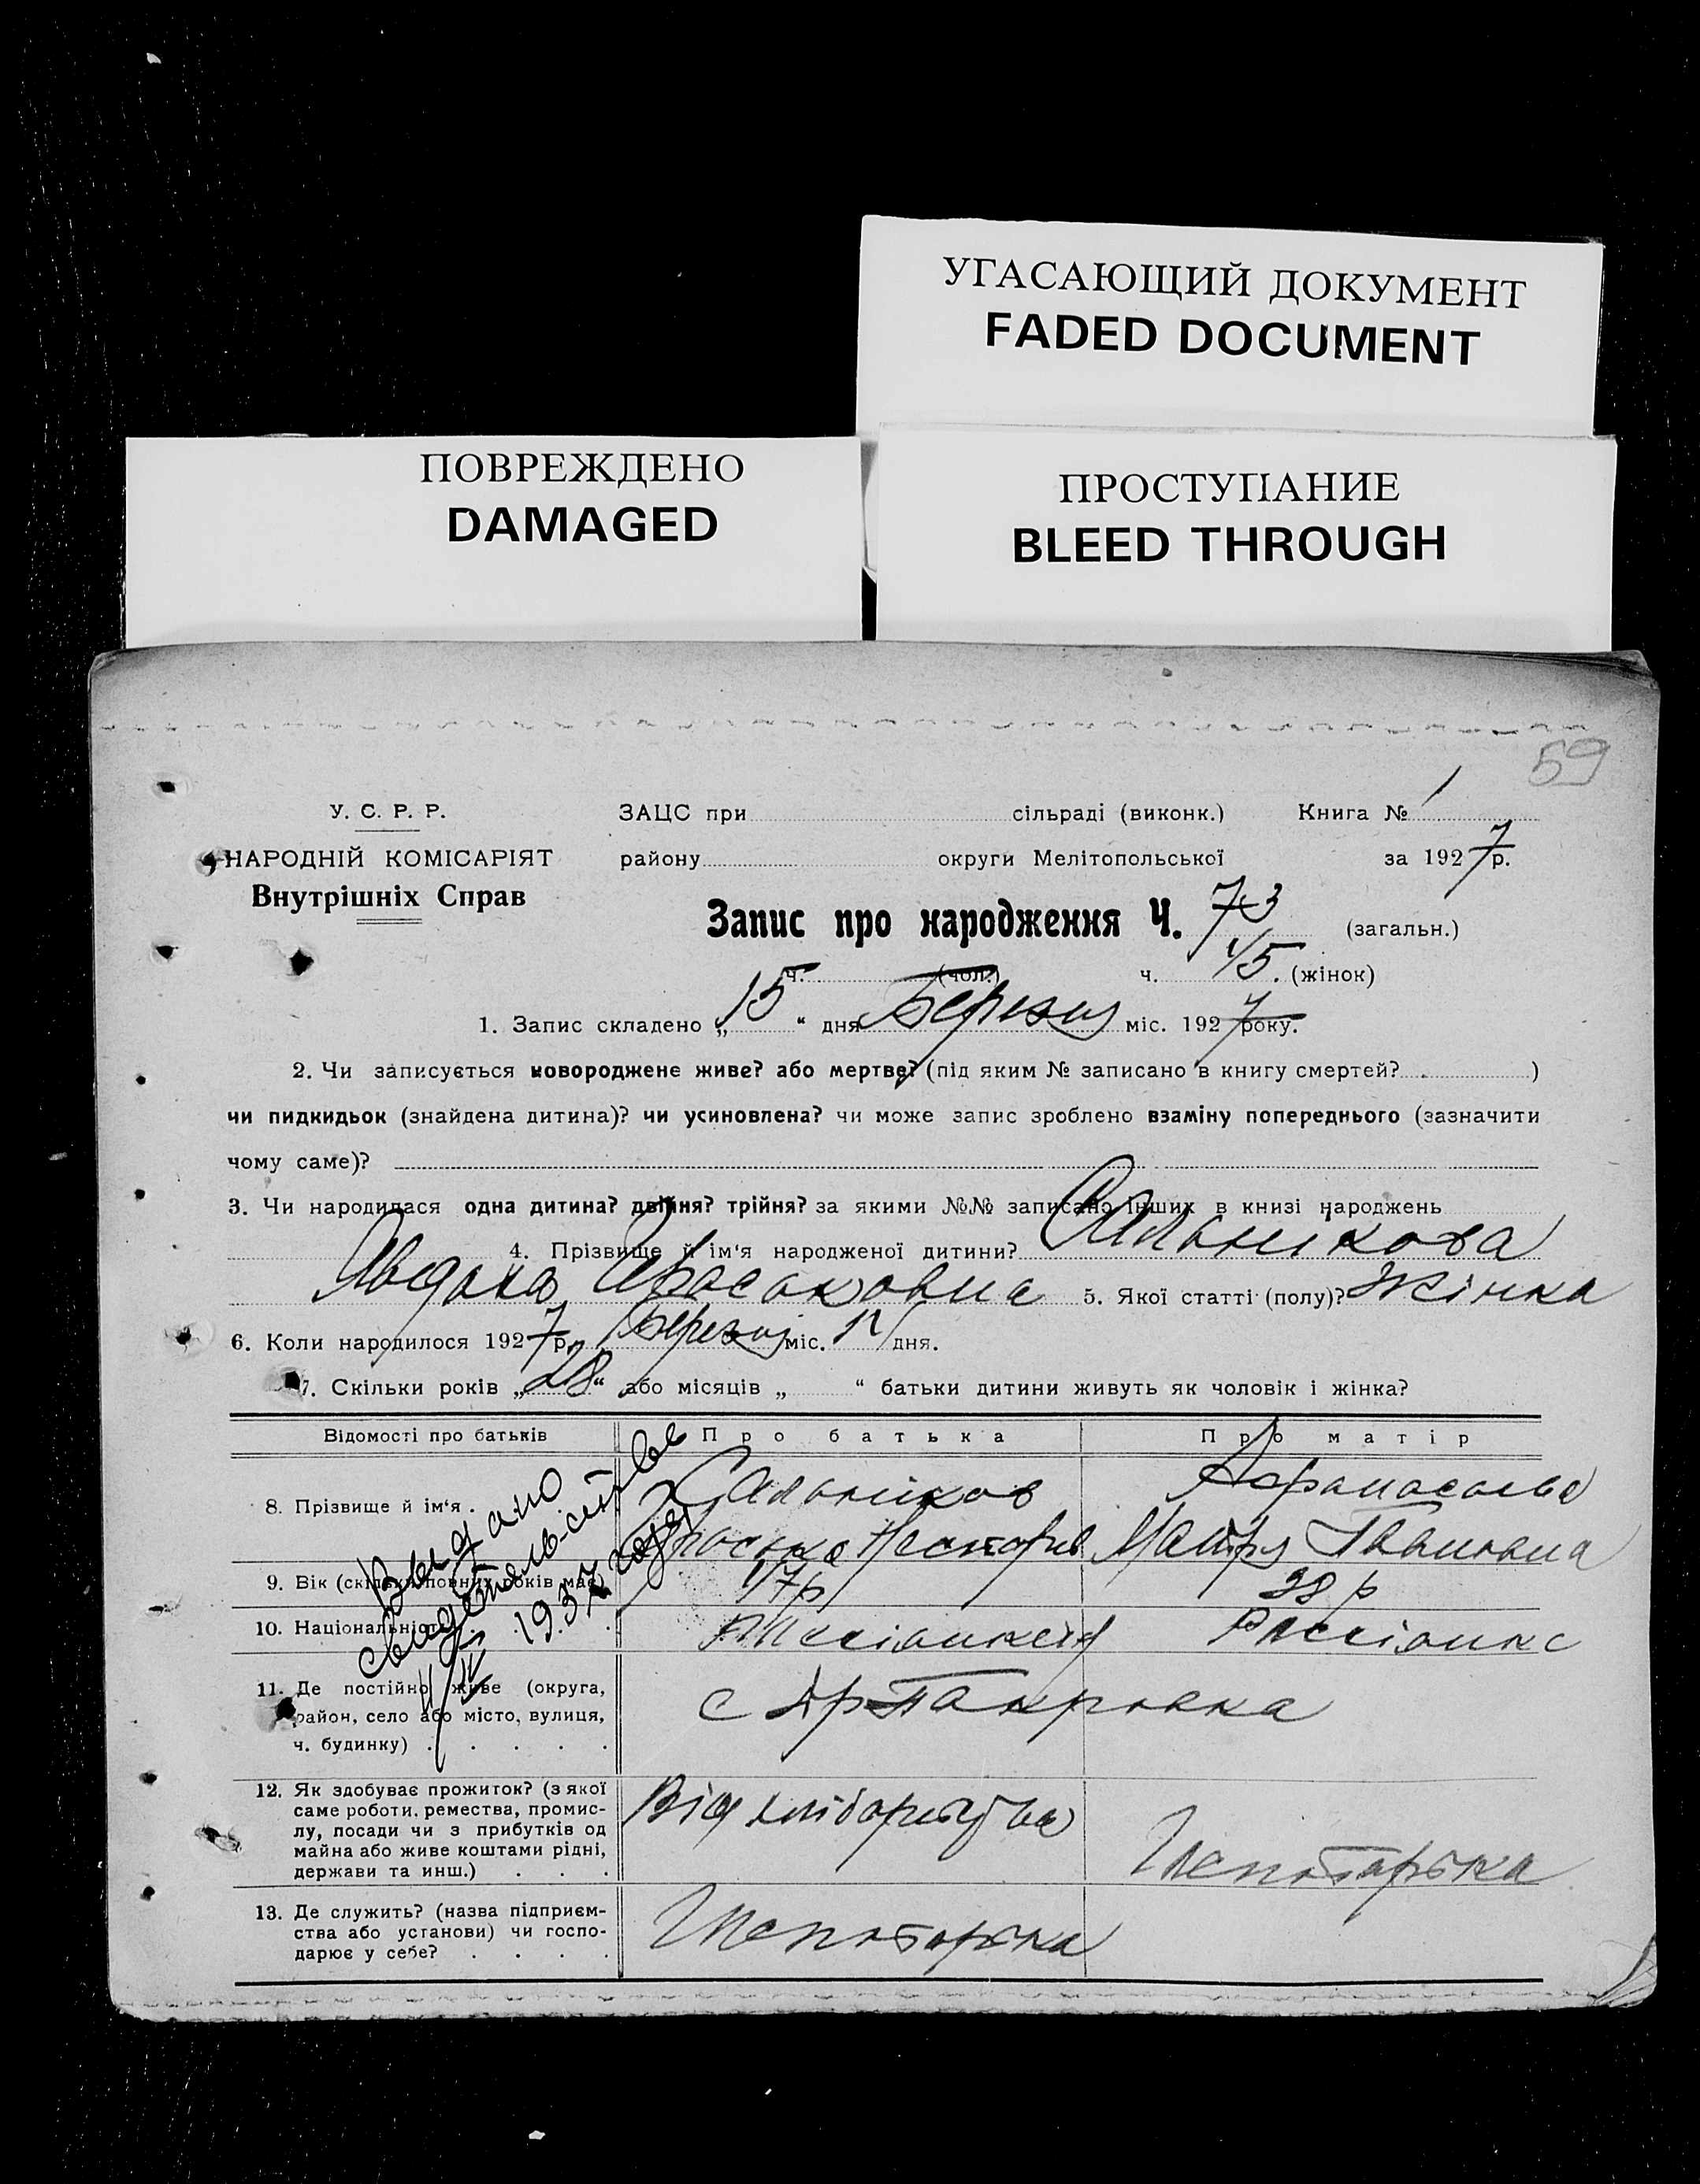 УГАСАЮЩИЙ ДОКУМЕНТ
FADED DOCUMENT
ПОВРЕЖДЕНО
DAMAGED
ПРОСТУПАНИЕ
BLEED THROUGH
59
У. С. Р. Р.
НАРОДНІЙ КОМІСАРІЯТ
Внутрішніх Справ
ЗАЦС при сільраді (виконк.) Книга № 1
району округи Мелітопольської за 1927 р.
Запис про народження Ч. 73 (загальн.)
ч. (чол.) ч. (жінок)
1. Запис складено „ 15 “ дня Березня міс. 1927 року.
2. Чи записується новороджене живе? або мертве? (під яким № записано в книгу смертей? )
чи пидкидьок (знайдена дитина)? чи усиновлена? чи може запис зроблено взаміну попереднього (зазначити
чому саме)?
3. Чи народилася одна дитина? двійня? трійня? за якими №№ записано інших в книзі народжень
4. Прізвище й ім‘я народженої дитини? Сальникова
5. Якої статті (полу)? Жінка
6. Коли народилося 1927 р. Березня міс. дня.
7. Скільки років „ 28 “ або місяців „ “ батьки дитини живуть як чоловік і жінка?
Відомості про батьків Про батька Про матір
8. Прізвище й ім‘я . Сальников
Марія Ивановна
9. Вік (скільки повних років має) 47р 38 р
10. Національність
11. Де постійно живе (округа,
район, село або місто, вулиця,
ч. будинку) . . . . .
12. Як здобуває прожиток? (з якої
саме роботи, ремества, промис-
лу, посади чи з прибутків од
майна або живе коштами рідні,
держави та инш.) . . .
Від хліборобства
13. Де служить? (назва підприєм-
ства або установи) чи госпо-
дарює у себе? . . . .
Выдано
свидетельство
1937 года